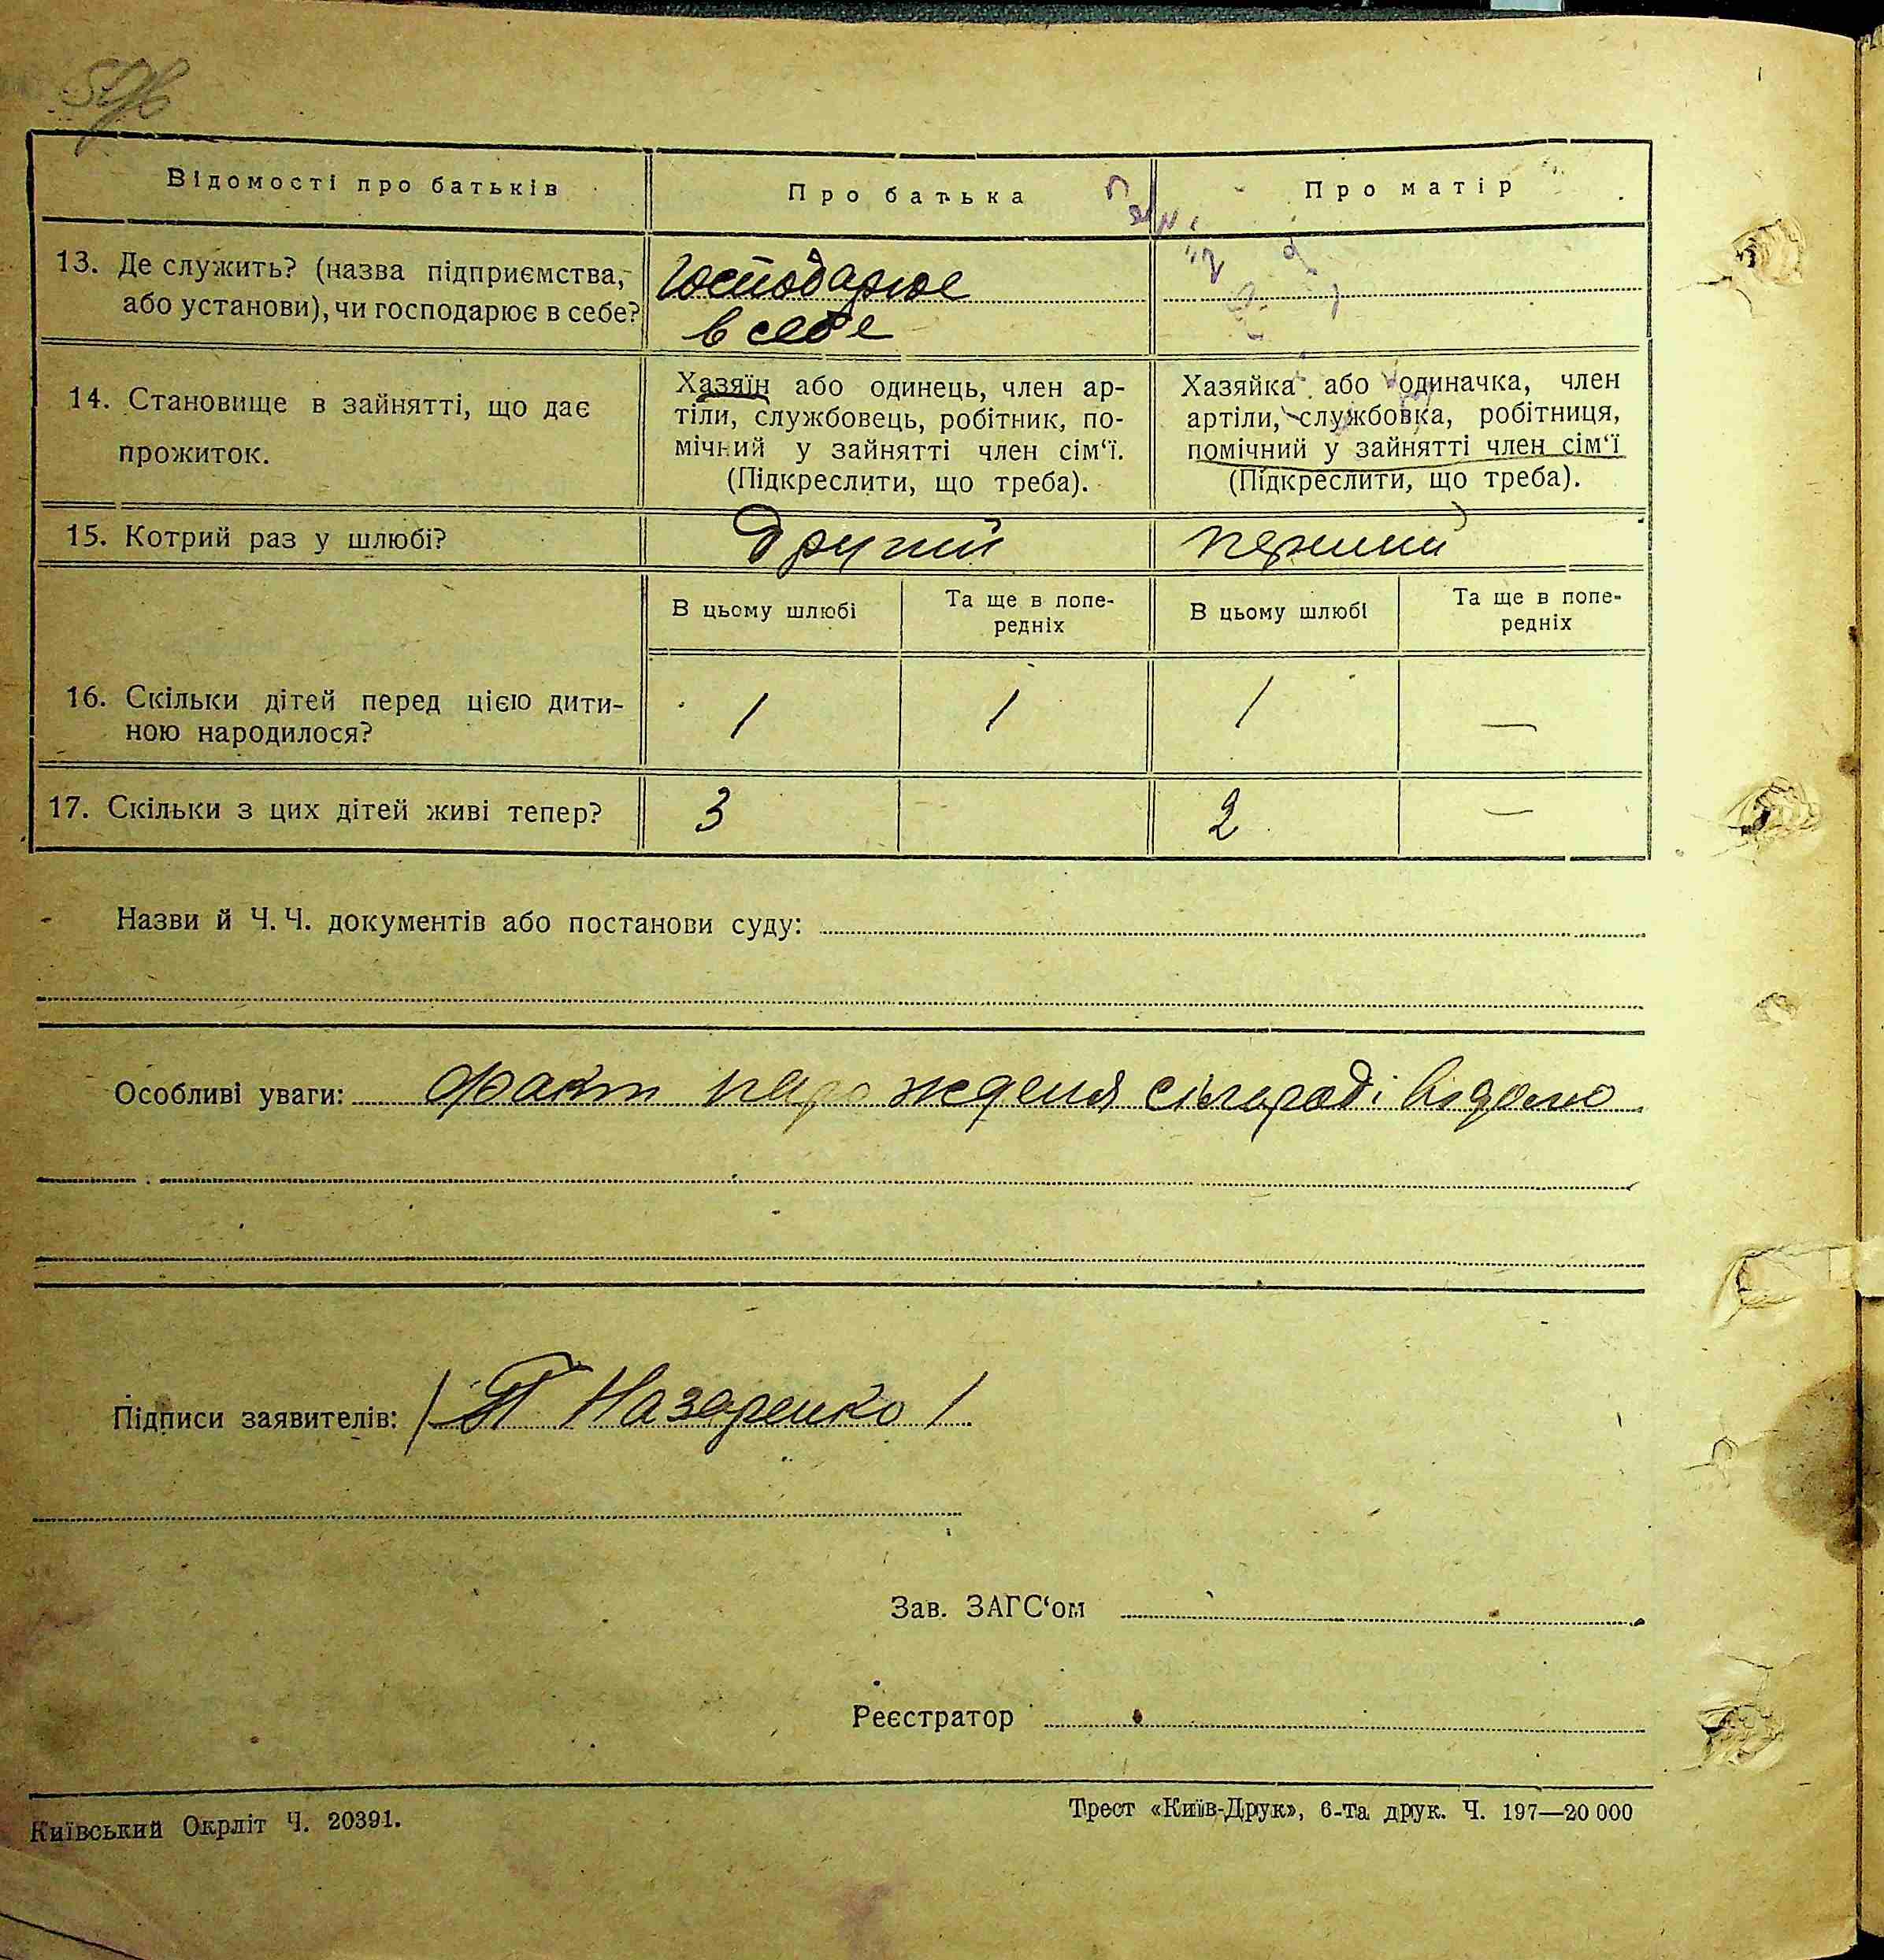 Відомості про батьків Про батька Про матір
13. Де служить? (назва підприємства, Господарює
або установи), чи господарює в себе? в себе
14. Становище в зайнятті, що дає
прожиток.
Хазяїн або одинець, член ар-
тіли, службовець, робітник, по-
мічний у зайнятті член сім‘ї.
(Підкреслити, що треба).
Хазяйка або одиначка, член
артіли, службовка, робітниця,
помічний у зайнятті член сім‘ї
(Підкреслити, що треба).
15. Котрий раз у шлюбі? Другий перший
В цьому шлюбі
Та ще в попе-
редніх
В цьому шлюбі
Та ще в попе-
редніх
16. Скільки дітей перед цією дити-
ною народилося?
1 1 1 —
17. Скільки з цих дітей живі тепер? 3 2 —
Назви й Ч. Ч. документів або постанови суду:
Особливі уваги: факт народженя сільраді відомо
Підписи заявителів: / П Назаренко /
Зав. ЗАГС‘ом
Реєстратор
Київський Окрліт Ч. 20391.
Трест «Київ-Друк», 6-та друк. Ч. 197—20 000